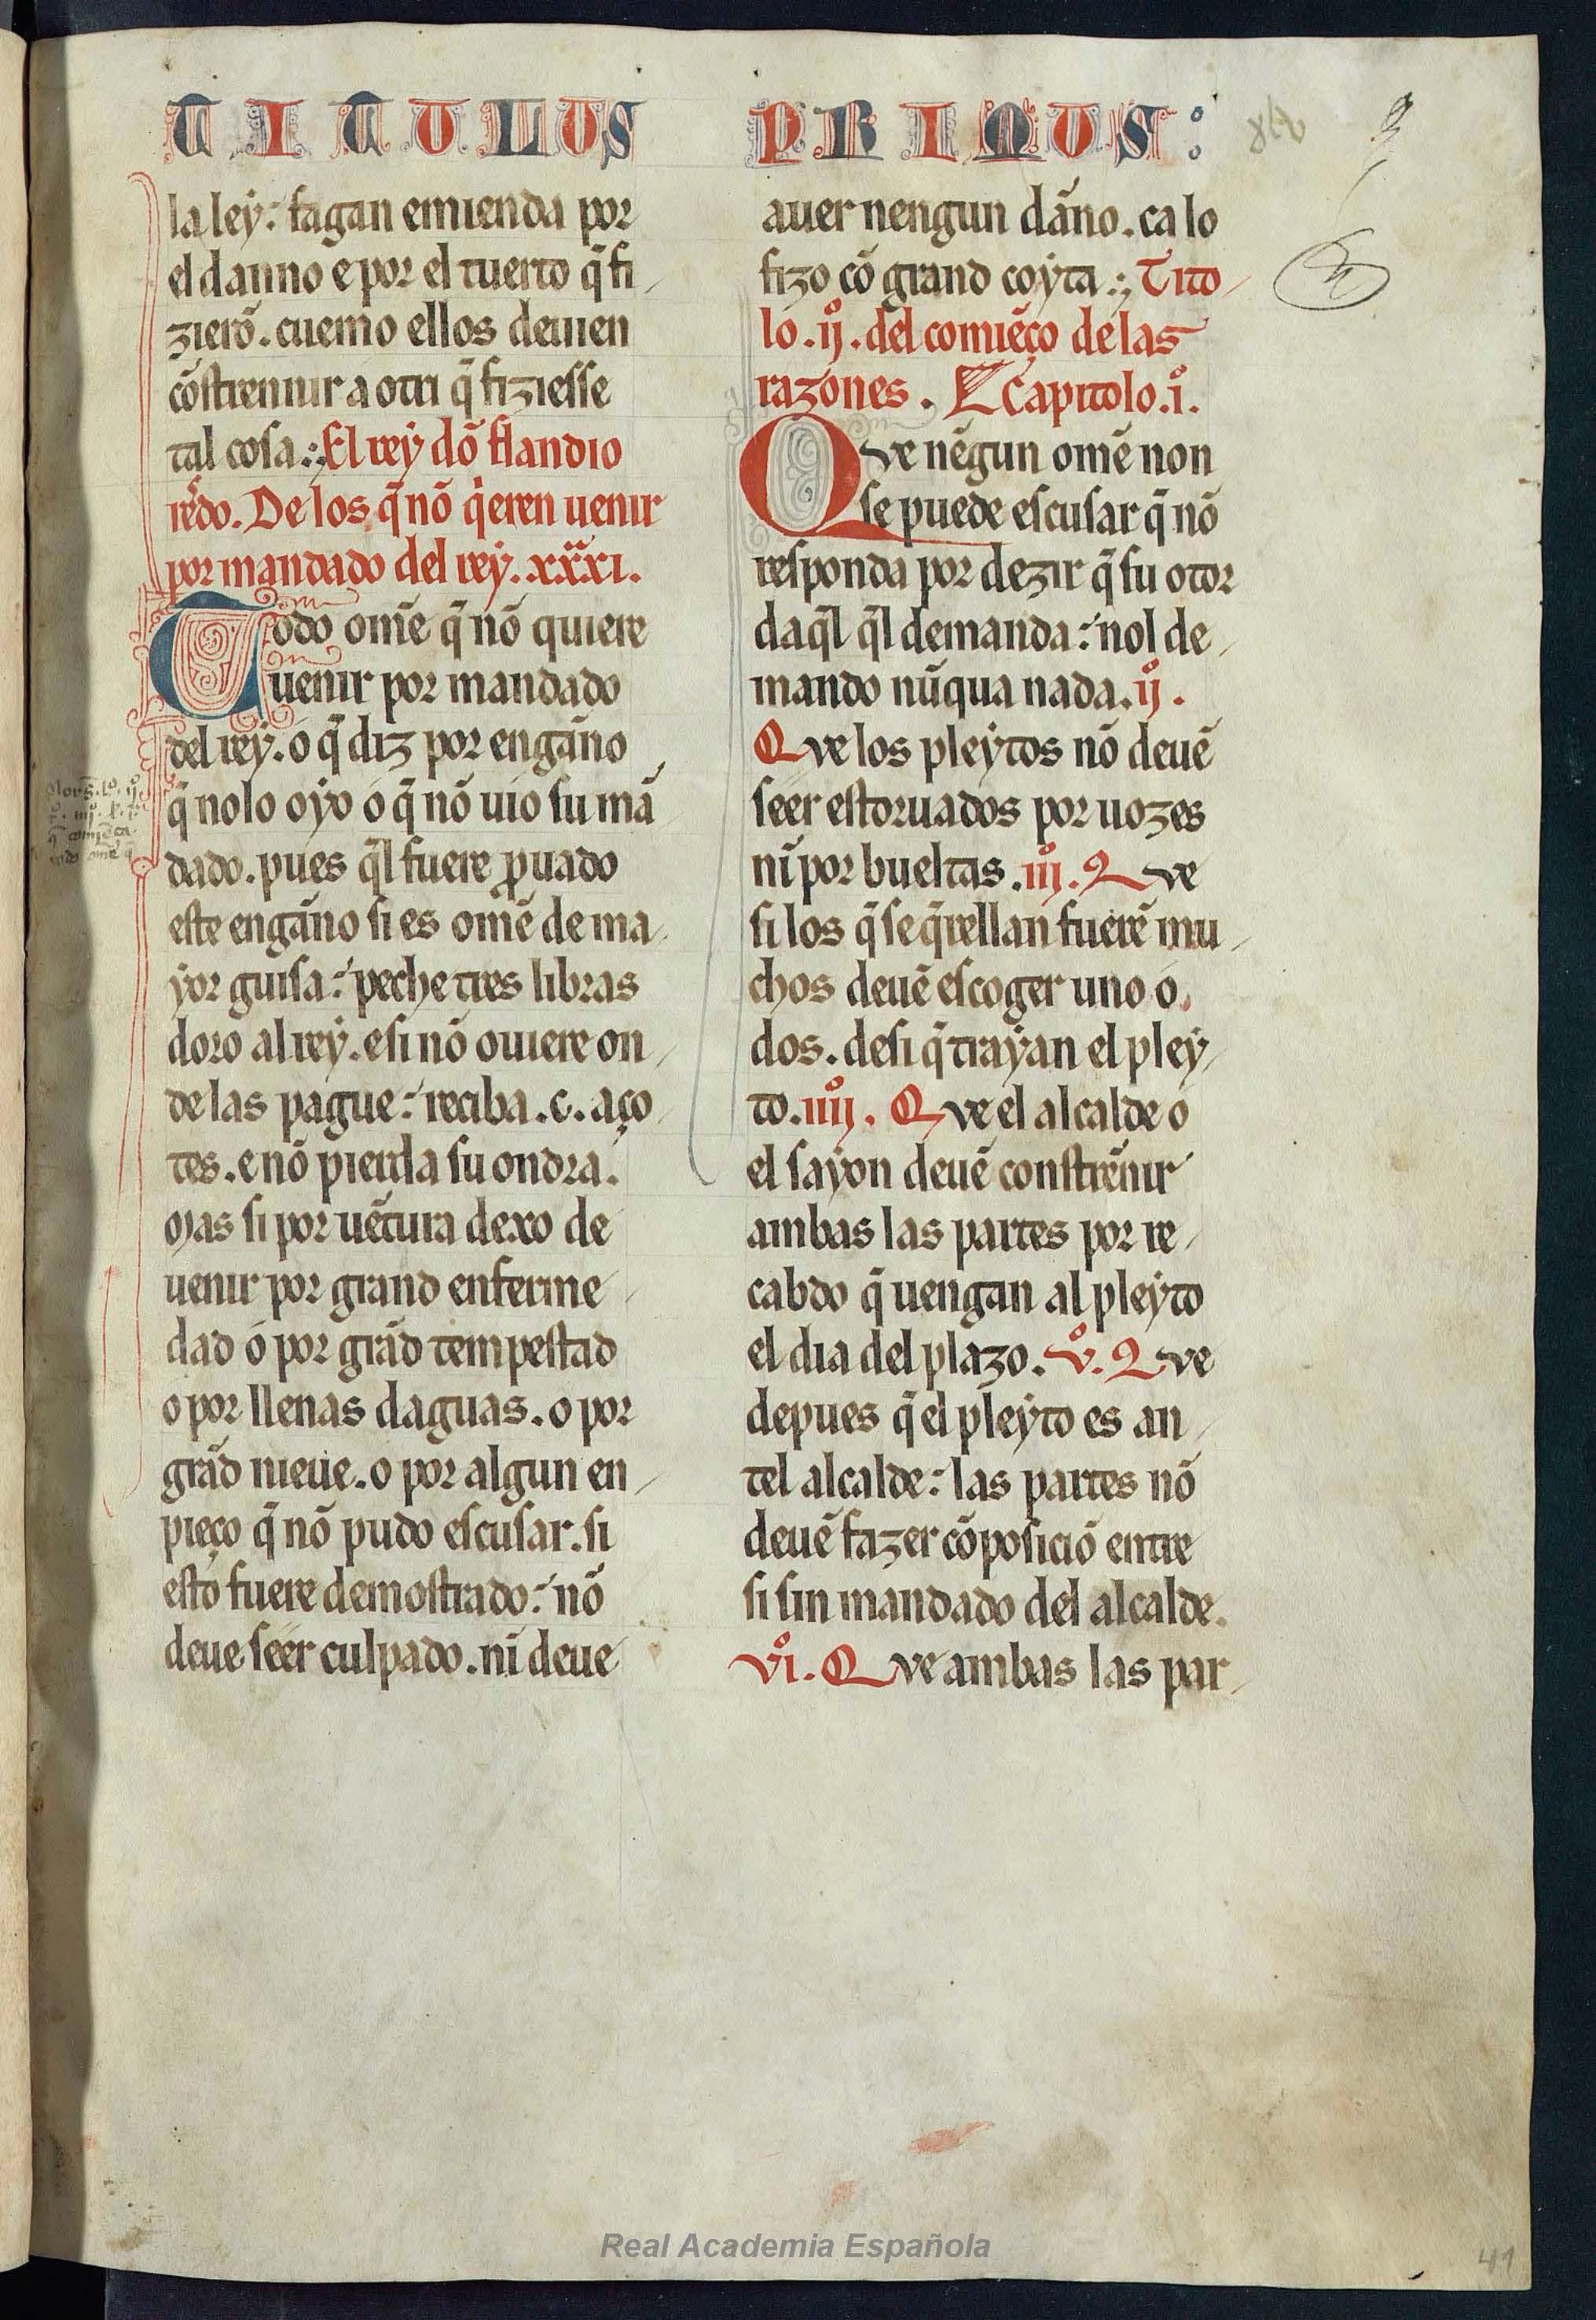 TITULUS PRIMUS:
la ley: fagan emienda por
el danno e por el tuerto q̃ fi
zierõ. cuemo ellos deuien
cõstrennir a otri q̃ fiziesse
tal cosa. El rey dõ flandio
redo. De los q̃ nõ q̃eren uenir
por mandado del rey. xxxi.
Todo ome q̃ nõ quiere
uenir por mandado
del rey. o q̃ diz por engãno
q̃ nolo oyo o q̃ nõ uio su mã
dado. pues q̃l fuere prouado
este engãno si es omẽ de ma
yor guisa: peche tres libras
doro al rey. e si nõ ouiere on
de las pague: reciba .c. aço
tes. e nõ pierda su ondra.
Mas si por uẽtura dexo de
uenir por grand enferme
dad o por grãd tempestad
o por llenas daguas. o por
grãd nieue. o por algun en
pieço q̃ nõ pudo escusar. si
esto fuere demostrado: nõ
deue seer culpado. nĩ deue
auer nengun dãno. ca lo
fizo cõ grand coyta. Tito
lo .ijº. del comiẽço de las
razones. Capitolo .iº.
Que nẽgun omẽ non
se puede escusar q̃ nõ
responda por dezir q̃ su otor
daq̃l q̃l demanda: nol de
mando nũqua nada. ijº.
Que los pleytos nõ deuẽ
seer estoruados por uozes
nĩ por bueltas. iijº. Que
si los q̃ se q̃rellan fuerẽ mu
chos deuẽ escoger uno o
dos. desi q̃ trayan el pley
to. iiijº. Que el alcalde o
el sayon deuẽ constrẽnir
ambas las partes por re
cabdo q̃ uengan al pleyto
el dia del plazo. vº. Que
depues q̃ el pleyto es an
tel alcalde: las partes nõ
deuẽ fazer cõposiciõ entre
si sin mandado del alcalde.
viº. Que ambas las par
Real Academia Española
41